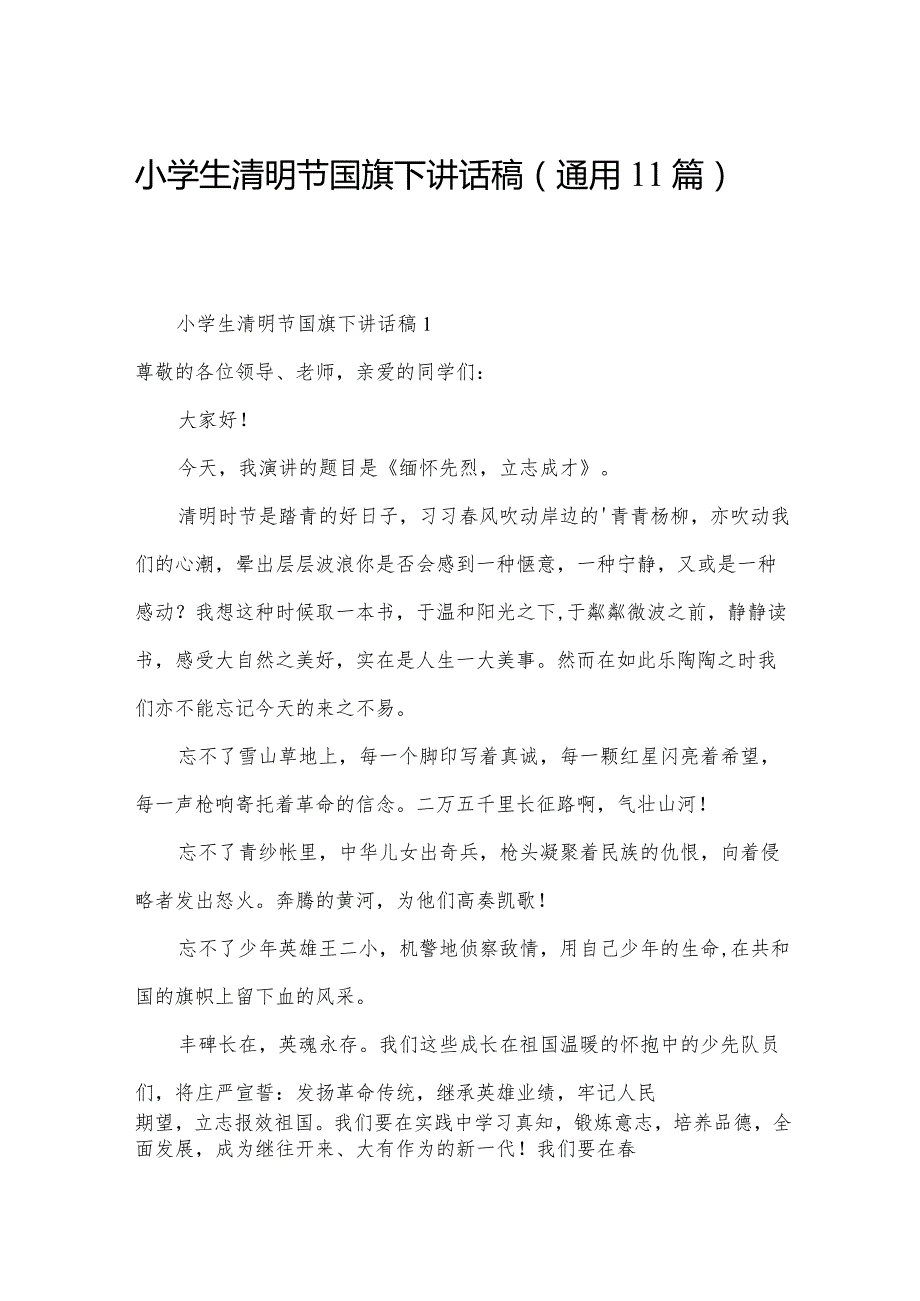 小学生清明节国旗下讲话稿（通用11篇）
小学生清明节国旗下讲话稿1
尊敬的各位领导、老师，亲爱的同学们：
大家好！
今天，我演讲的题目是《缅怀先烈，立志成才》。
清明时节是踏青的好日子，习习春风吹动岸边的'青青杨柳，亦吹动我
们的心潮，晕出层层波浪你是否会感到一种惬意，一种宁静，又或是一种
感动？我想这种时候取一本书，于温和阳光之下,于粼粼微波之前，静静读
书，感受大自然之美好，实在是人生一大美事。然而在如此乐陶陶之时我
们亦不能忘记今天的来之不易。
忘不了雪山草地上，每一个脚印写着真诚，每一颗红星闪亮着希望，
每一声枪响寄托着革命的信念。二万五千里长征路啊，气壮山河！
忘不了青纱帐里，中华儿女出奇兵，枪头凝聚着民族的仇恨，向着侵
略者发出怒火。奔腾的黄河，为他们高奏凯歌！
忘不了少年英雄王二小，机警地侦察敌情，用自己少年的生命,在共和
国的旗帜上留下血的风采。
丰碑长在，英魂永存。我们这些成长在祖国温暖的怀抱中的少先队员
们，将庄严宣誓：发扬革命传统，继承英雄业绩，牢记人民
期望，立志报效祖国。我们要在实践中学习真知，锻炼意志，培养品德，全
面发展，成为继往开来、大有作为的新一代！我们要在春